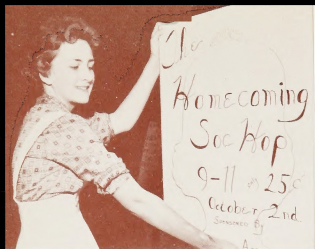 Homecoming
Soc Hop
9-11 25¢
October 2nd
Sponsored By